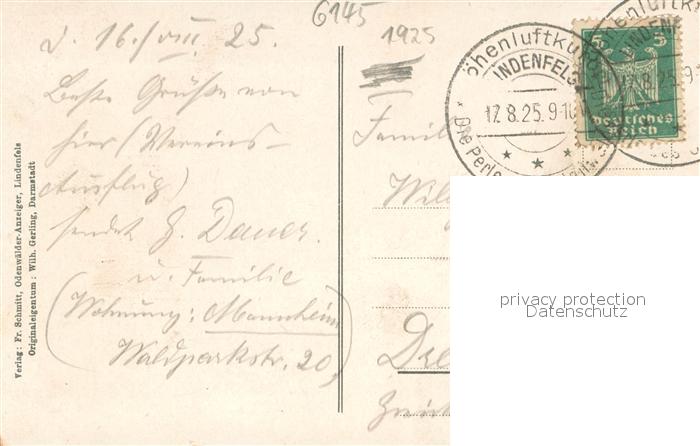 6145
1925
d. 16./VIII. 25.
Beste Grüße von
hier (Vereins-
Ausflug)
sendet H. Dauer.
u. Familie
(Wohnung: Mannheim
Waldparkstr. 20.)
Verlag: Fr. Schmitt, Odenwälder-Anzeiger, Lindenfels
Originaleigentum: Wilh. Gerling, Darmstadt
öhenluftku
INDENFELS
17.8.25.9-10
Die Perle
5 5
Deutsches
Reich
Famil
Wil
Dre
privacy protection
Datenschutz